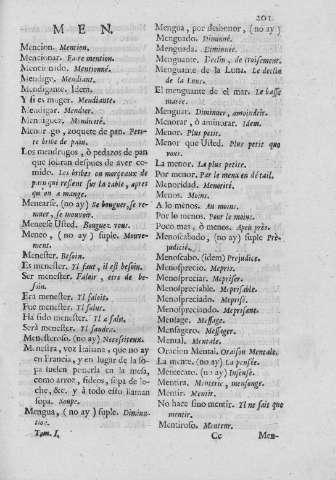 201.
MEN.
Mencion. Mention.
Mencionar. Faire mention.
Mencionado. Mentionné.
Mendigo. Mendiant.
Mendigante. Idem.
Y si es muger. Mendiante.
Mendigar. Mendier.
Mendiguez. Mendicité.
Mendrugo, zoquete de pan. Peti-
te bribe de pain.
Los mendrugos, ò pedazos de pan
que sobran despues de aver co-
mido. Les bribes ou morceaux de
pain qui restent sur la table, apres
qu'on a mangé.
Menearse, (no ay) Se bouger, se re-
muer, se mouvoir.
Meneese Usted. Bougez vous.
Meneo, (no ay) suple. Mouve-
ment.
Menester. Besoin.
Es menester. Il faut, il est besoin.
Ser menester. Faloir, être de be-
soin.
Era menester. Il faloit.
Fue menester. Il falut.
Ha sido menester. Il a falu.
Serà menester. Il faudra.
Menesteroso. (no ay) Necessiteux.
Menestra, voz Italiana, que no ay
en Francia, y en lugar de la so-
pa suelen ponerla en la mesa,
como arroz, fideos, sopa de lo-
che, &c. y à todo esto llaman
sopa. Soupe.
Mengua, (no ay) suple. Diminu-
tion.
Tom. I.
Mengua, por deshonor, (no ay)
Menguado. Diminué.
Menguada. Diminuée.
Menguante. Declin, de croisement.
Menguante de la Luna. Le declin
de la Lune.
El menguante de el mar. La basse
marée.
Menguar. Diminuer, amoindrir.
Menorar, ò aminorar. Idem.
Menor. Plus petit.
Menor que Usted. Plus petit que
vous.
La menor. La plus petite.
Por menor. Par le menu en détail.
Menoridad. Menorité.
Menos. Moins.
A lo menos. Au moins.
Por lo menos. Pour le moins.
Poco mas, ò menos. Apeu près.
Menoscabado, (no ay) suple Prè-
judicié.
Menoscabo. (idem) Prejudice.
Menosprecio. Mepris.
Menospreciar. Mepriser.
Menospreciable. Meprisable.
Menospreciado. Meprisé.
Menospreciando. Meprisant.
Mensage. Message.
Mensagero. Messager.
Mental. Mentale.
Oracion Mental. Oraison Mentale.
La mente. (no ay) La pensée.
Mentecato. (no ay) Insensé.
Mentira. Menterie, mensonge.
Mentir. Mentir.
No hace sino mentir. Il ne fait que
mentir.
Mentiroso. Menteur.
Cc Men-